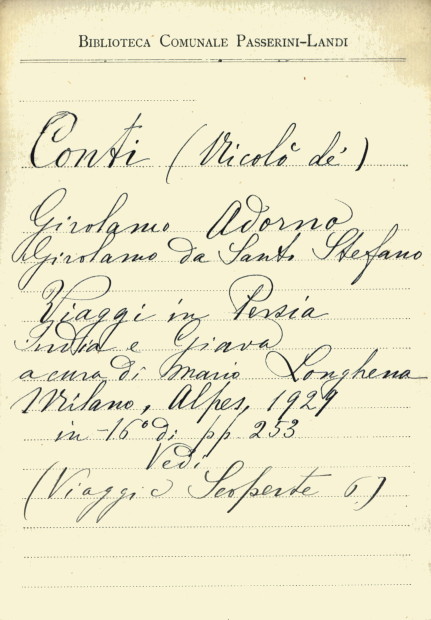 BIBLIOTECA COMUNALE PASSERINI-LANDI
Conti (Nicolò dé)
Girolamo Adorno
Girolamo da Santo Stefano
Viaggi in Persia
India e Giava
a cura di Mario Longhena
Milano, Alpes, 1929
in -16° di pp 253
Vedi
(Viaggi e Scoperte 6.)